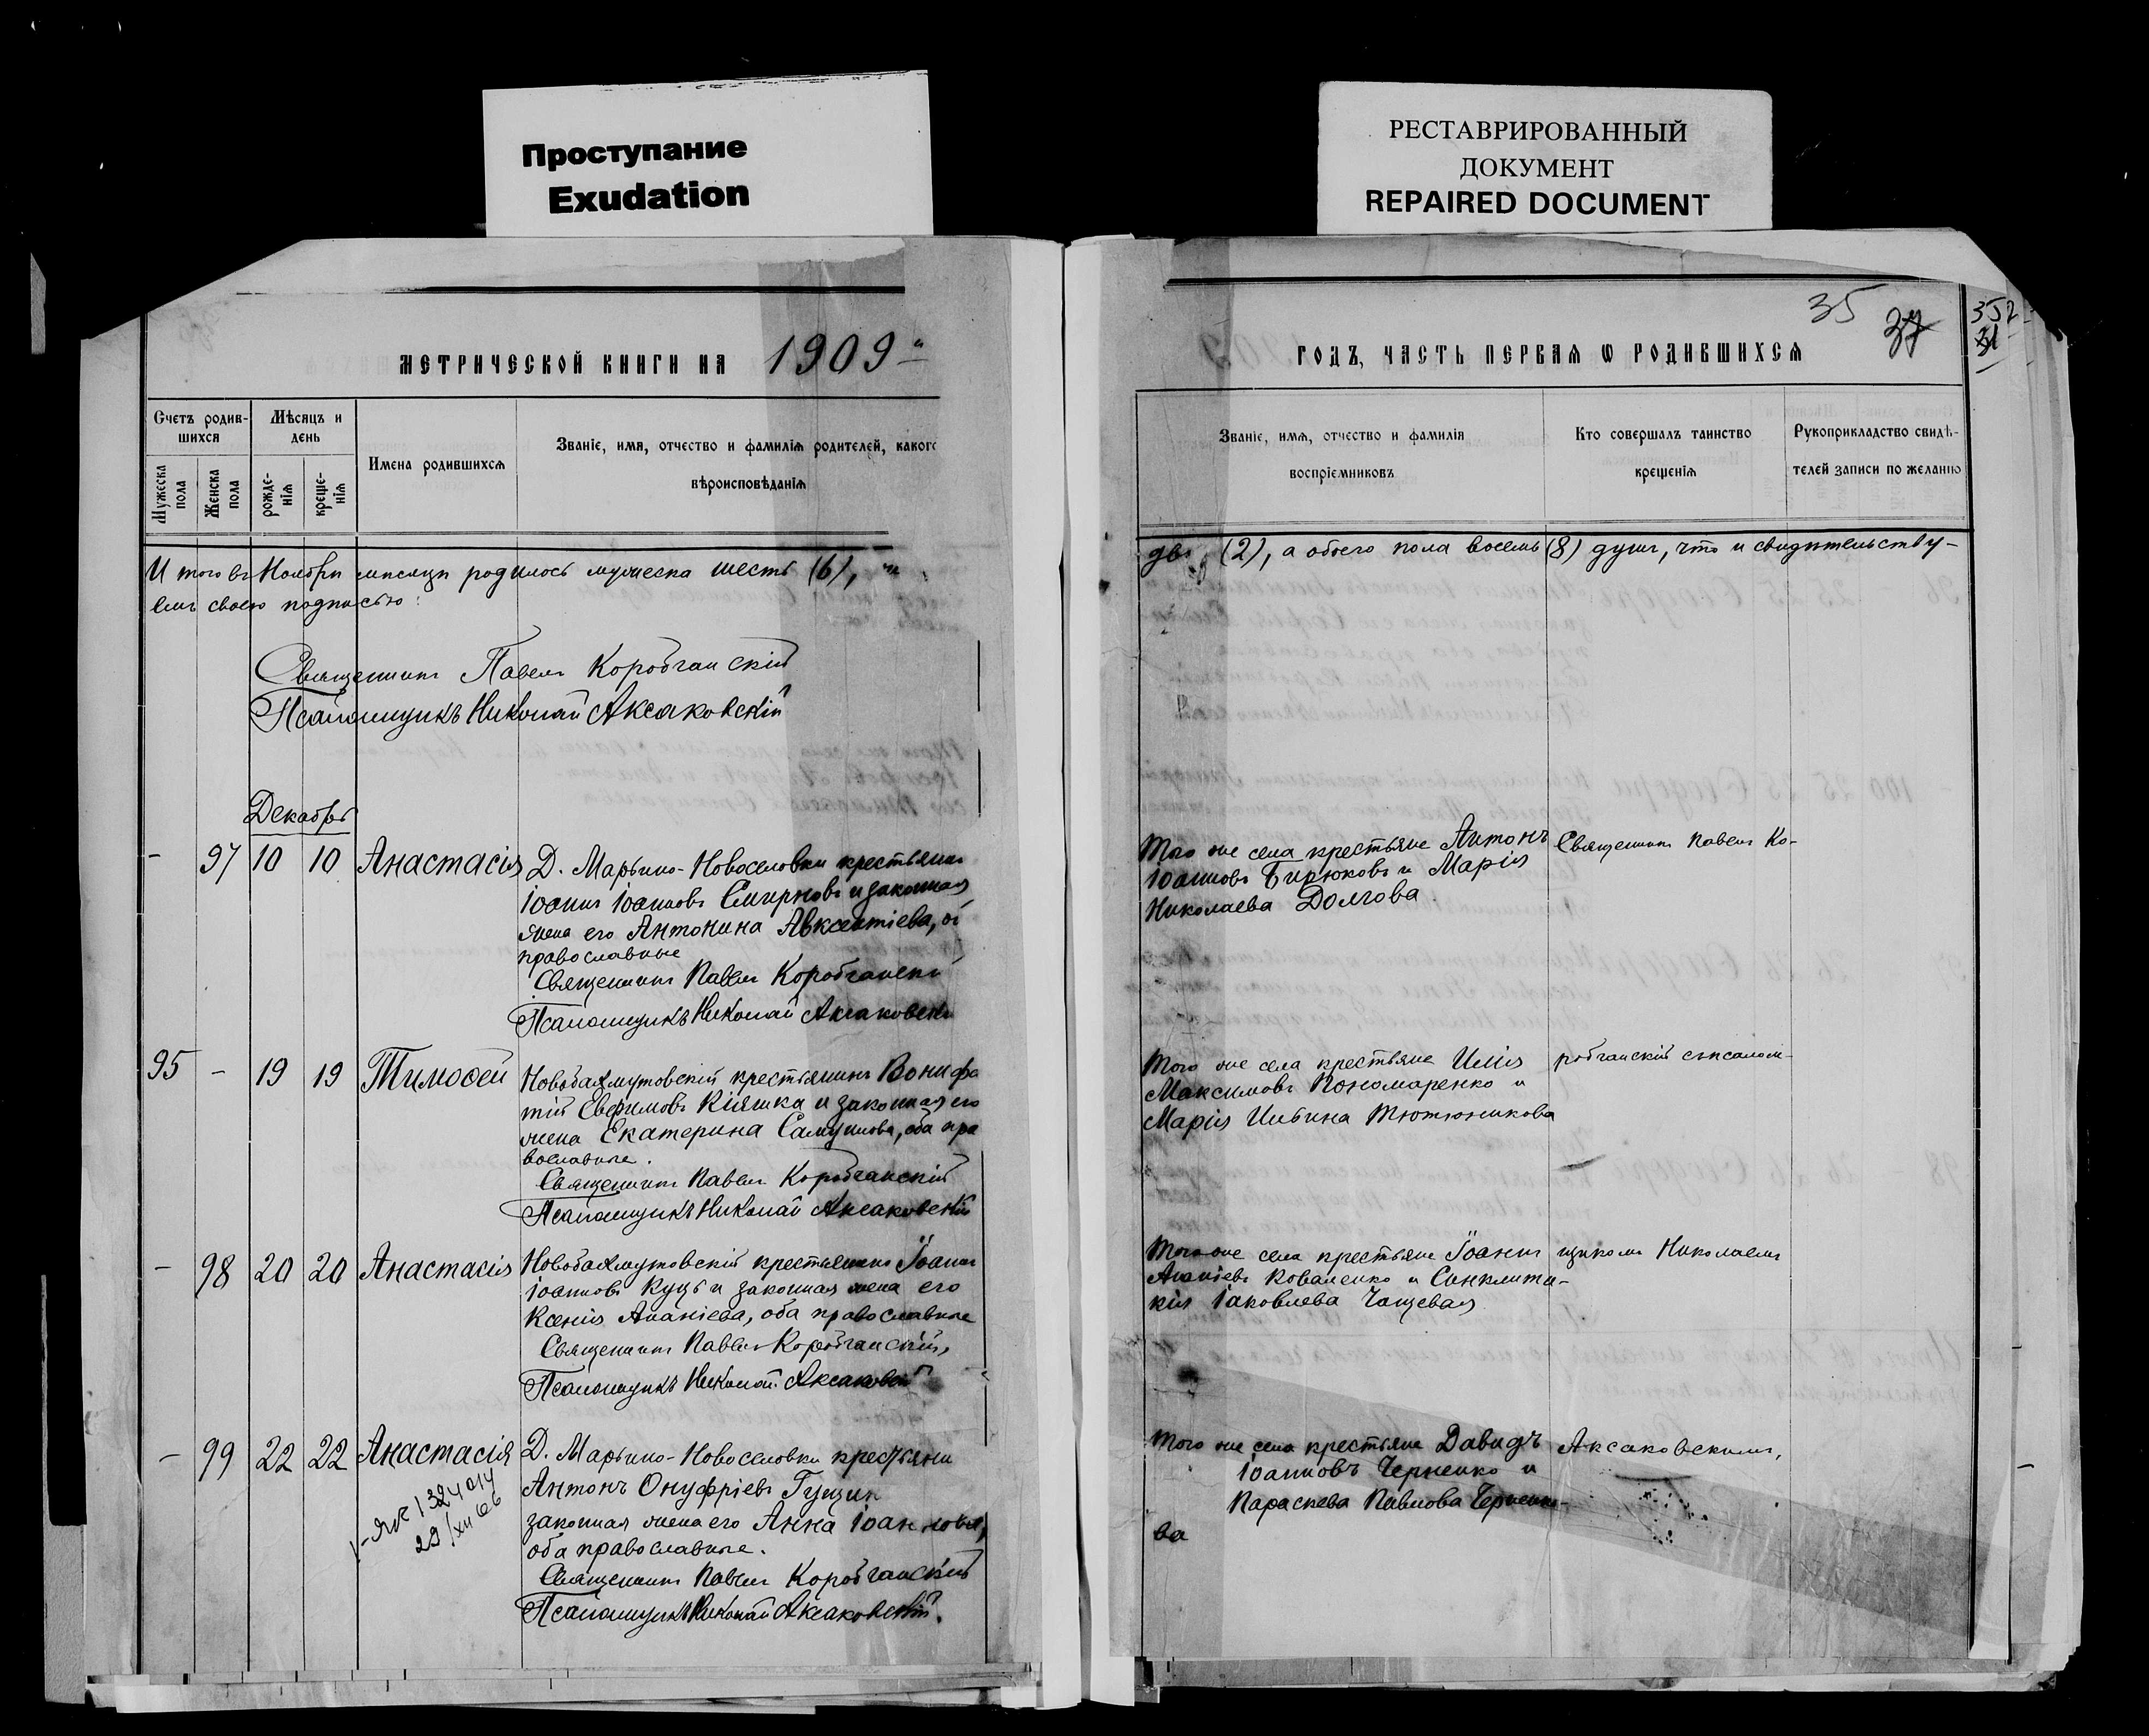 Проступание
Exudation
РЕСТАВРИРОВАННЫЙ
ДОКУМЕНТ
REPAIRED DOCUMENT
МЕТРИЧЕСКОЙ КНИГИ НА 1909
Счетъ родив-
шихся
Мужеска
пола
Женска
пола
Мѣсяцъ и
день
рожде-
нія
креще-
нія
Имена родившихся
Званіе, имя, отчество и фамилія родителей, каког
вѣроисповѣданія
И того въ Ноябрѣ мѣсяцѣ родилось мужеска шесть (6),
емъ своею подписью
Священникъ Павелъ Коробчанскій
Псаломщикъ Николай Аксаковскій
Декабрь
- 97 10 10 Анастасія
Д. Марьино-Новоселовки крестьянинъ
Іоаннъ Іоанновъ Смирновъ и законная
жена его Антонина Авксентіева, о
православные
Священникъ Павелъ Коробчанскі
Псаломщикъ Николай Аксаковскі
95 - 19 19 Тимофей
Новобахмутовскій крестьянинъ Вонифа
тій Евфимовъ Кіяшка и законная его
жена Екатерина Самуилова, оба пра
вославные.
Священникъ Павелъ Коробчанскій
Псаломщикъ Николай Аксаковскій
- 98 20 20 Анастасія
Новобахмутовскій крестьянинъ Іоаннъ
Іоанновъ Куцъ и законная жена его
Ксенія Ананіева, оба православные
Священникъ Павелъ Коробчанскій
Псаломщикъ Николай Аксаковскій
- 99 22 22 Анастасія
Д. Марьино-Новоселовки крестьяни
Антонъ Онуфріевъ Гущин
законная жена его Анна Іоаннова,
оба православные.
Священникъ Павелъ Коробчанскій
Псаломщикъ Николай Аксаковскій.
35 37
352
31
ГОДЪ, ЧАСТЬ ПЕРВАЯ Ѡ РОДИВШИХСЯ
Званіе, имя, отчество и фамилія
воспріемниковъ
Кто совершалъ таинство
крещенія
Рукоприкладство свидѣ-
телей записи по желанію
две (2), а обоего пола восемь (8) душъ, что и свидѣтельству-
Того же села крестьяне Антонъ
Іоанновъ Бирюковъ и Марія
Николаева Долгова
Священникъ Павелъ Ко-
Того же села крестьяне Илія
Максимовъ Пономаренко и
Марія Тютюникова
робчанскій съ псалом-
Того же села крестьяне Іоаннъ
Ананіевъ Коваленко и Синклити-
кія Іаковлева Чащевая
щикомъ Николаемъ
Того же села крестьяне Давидъ
Іоанновъ Черненко и
Параскева Павлова Черненко-
ва
Аксаковскимъ,